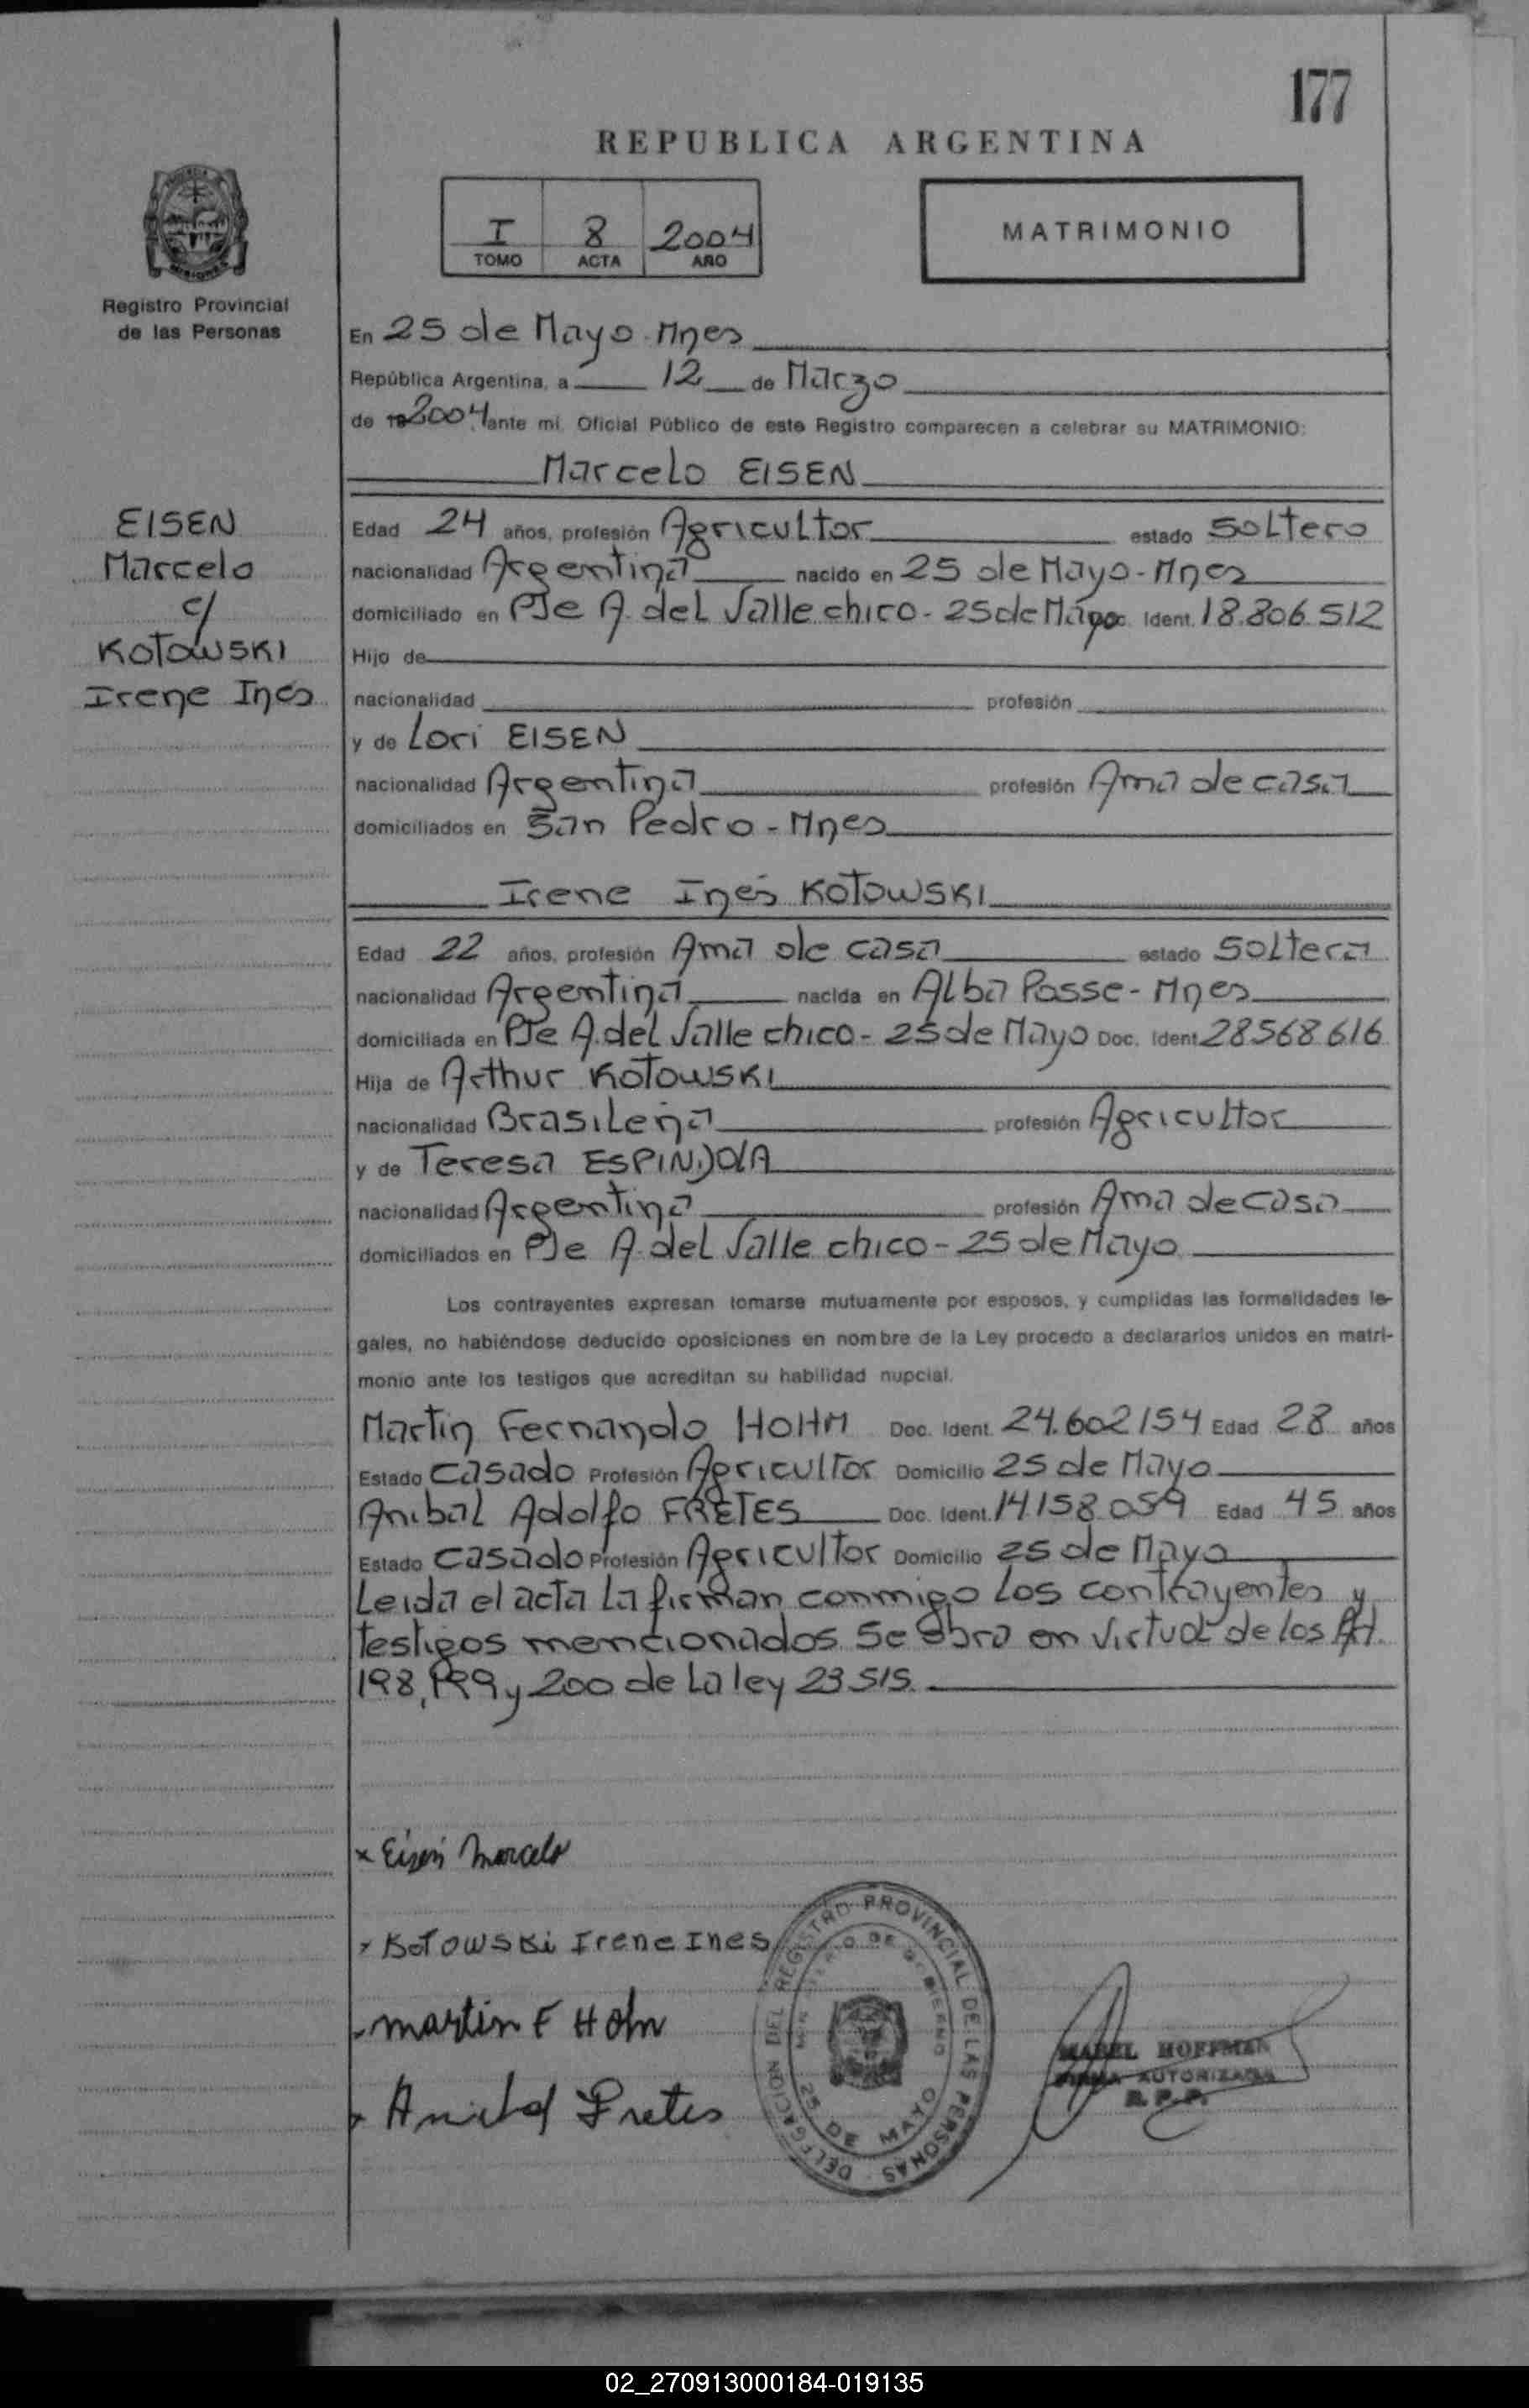 177
REPUBLICA ARGENTINA
I 8 2004
TOMO ACTA AÑO
MATRIMONIO
Registro Provincial
de las Personas
En 25 de Mayo-Mnes
República Argentina, a 12 de Marzo
de 19 2004 ante mi, Oficial Público de este Registro comparecen a celebrar su MATRIMONIO:
Marcelo EISEN
EISEN
Marcelo
c/
KOTOWSKI
Irene Inés
Edad 24 años, profesión Agricultor estado Soltero
nacionalidad Argentina nacido en 25 de Mayo-Mnes
domiciliado en Pje A. del Valle chico - 25 de Mayo Doc. Ident. 18.806.512
Hijo de
nacionalidad profesión
y de Lori EISEN
nacionalidad Argentina profesión Ama de casa
domiciliados en San Pedro - Mnes
Irene Inés KOTOWSKI
Edad 22 años, profesión Ama de casa estado Soltera
nacionalidad Argentina nacida en Alba Posse - Mnes
domiciliada en Pje A. del Valle chico - 25 de Mayo Doc. Ident 28568.616
Hija de Arthur KOTOWSKI
nacionalidad Brasileña profesión Agricultor
y de Teresa ESPINDOLA
nacionalidad Argentina profesión Ama de casa
domiciliados en Pje A. del Valle chico - 25 de Mayo
Los contrayentes expresan tomarse mutuamente por esposos, y cumplidas las formalidades le-
gales, no habiéndose deducido oposiciones en nombre de la Ley procedo a declararlos unidos en matri-
monio ante los testigos que acreditan su habilidad nupcial.
Martin Fernando HOHM Doc. Ident. 24.602154 Edad 28 años
Estado Casado Profesión Agricultor Domicilio 25 de Mayo
Anibal Adolfo FRETES Doc. Ident. 14.158.059 Edad 45 años
Estado Casado Profesión Agricultor Domicilio 25 de Mayo
Leida el acta la firman conmigo los contrayentes y
testigos mencionados. Se obra en virtud de los Art.
198, 199 y 200 de la ley 23.515.
x Eisen Marcelo
x Kotowski Irene Ines
- martin F Hohn
x Anibal Fretes
DELEGACION DEL REGISTRO PROVINCIAL DE LAS PERSONAS
MINISTERIO DE GOBIERNO
25 DE MAYO
MABEL HOFFMAN
FIRMA AUTORIZADA
R.P.P.
02_270913000184-019135